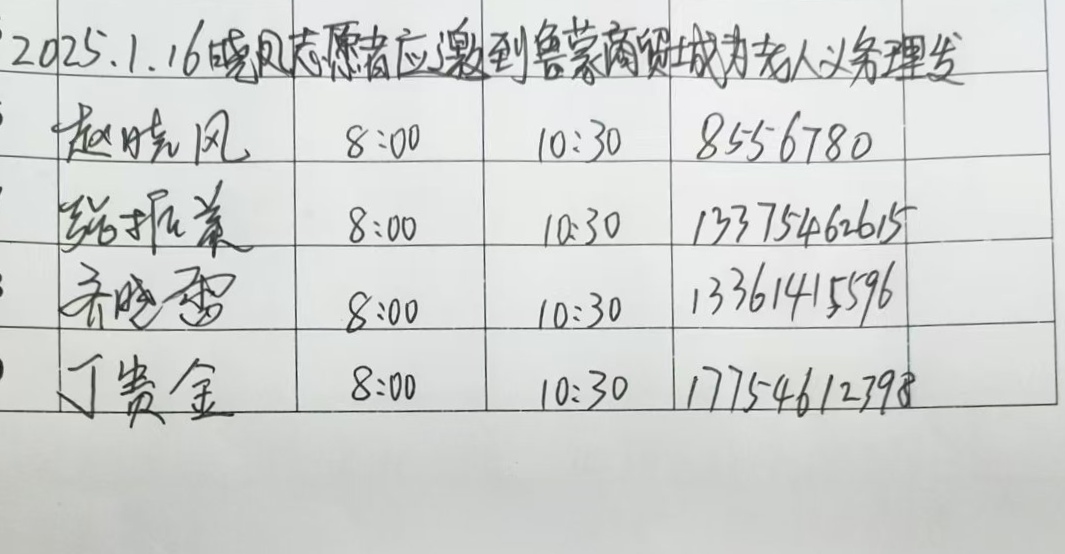 2025.1.16晓风志愿者应邀到鲁蒙商贸城为老人义务理发
赵晓风 8:00 10:30 8556780
振美 8:00 10:30 13375462615
齐晓雷 8:00 10:30 13361415596
丁贵金 8:00 10:30 17754612398